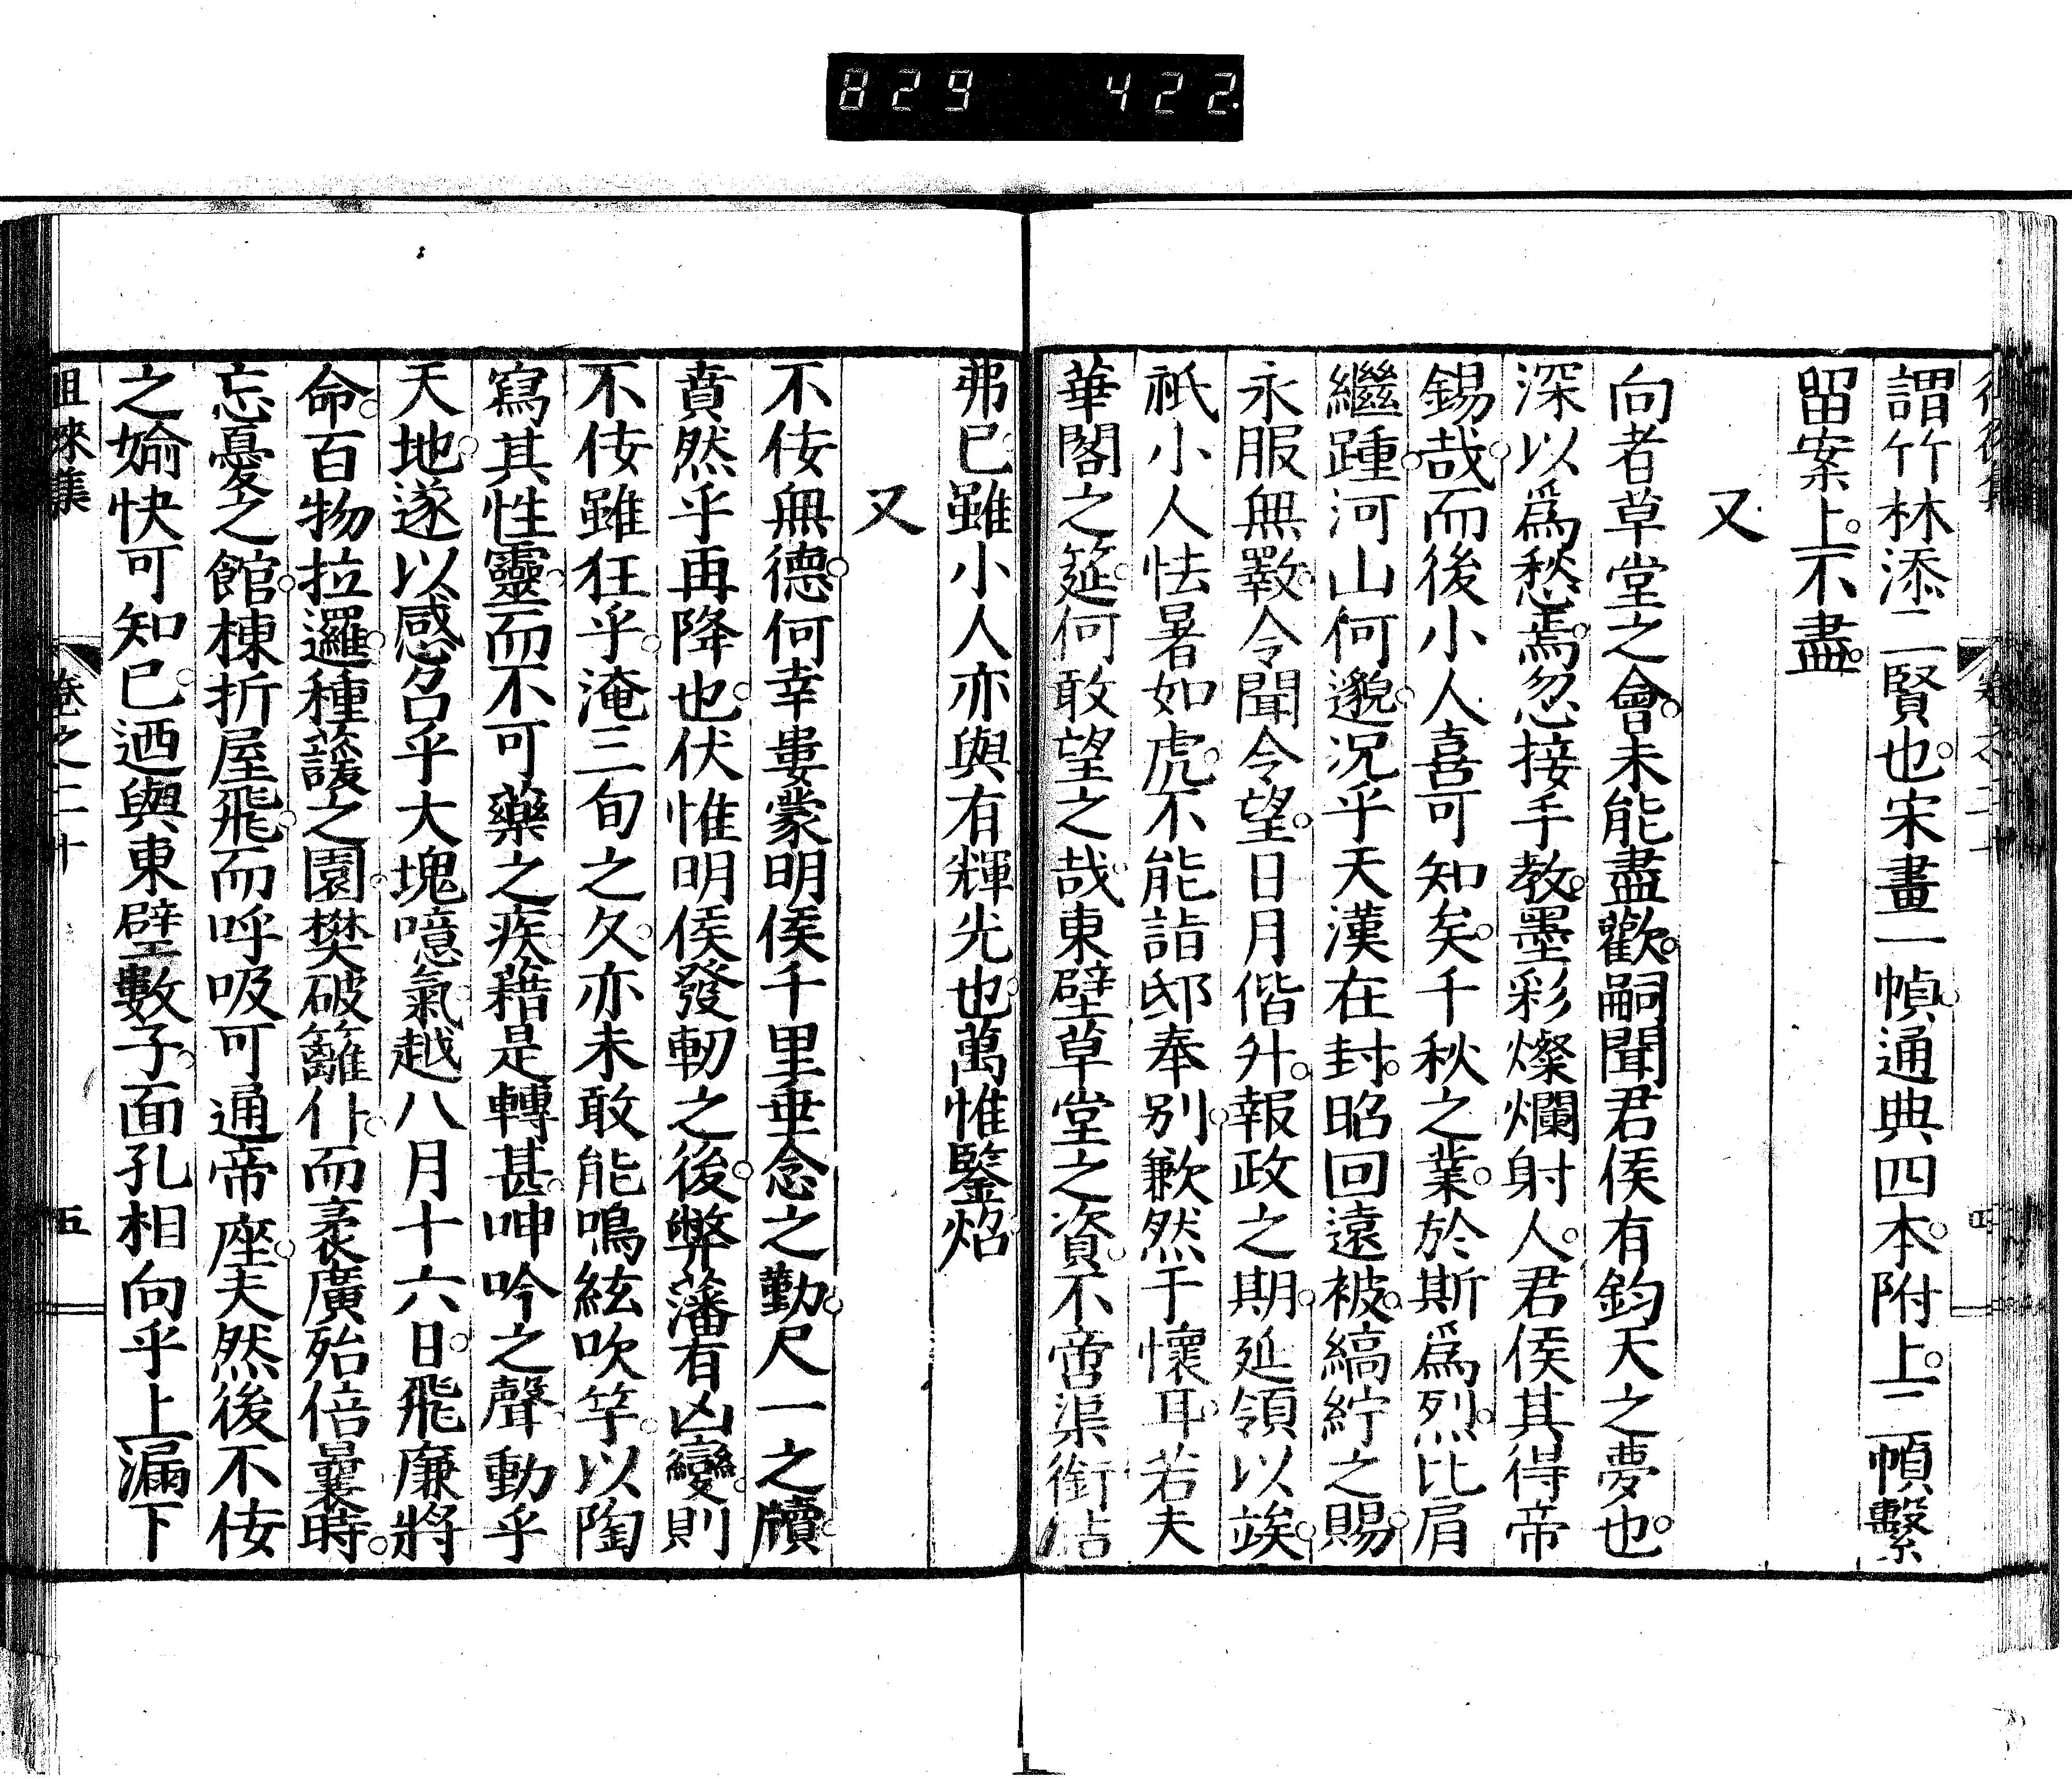 829 422
謂竹林添二賢也宋畫一幀通典四本附上二幀繫
留案上不盡
又
向者草堂之會未能盡歡嗣聞君侯有鈞天之夢也
深以爲愁焉忽接手教墨彩燦爛射人君侯其得帝
錫哉而後小人喜可知矣千秋之業於斯爲烈比肩
繼踵河山何邈況乎天漢在封昭回遠被縞紵之賜
永服無斁令聞令望日月偕升報政之期延領以竢
祇小人怯暑如虎不能詣邸奉別歉然于懷耳若夫
華閣之筵何敢望之哉東壁草堂之資不啻渠銜
弗已雖小人亦與有輝光也萬惟鑒炤
又
不佞無德何幸婁蒙明侯千里垂念之勤尺一之牘
賁然乎再降也伏惟明侯發軔之後弊藩有凶變則
不佞雖狂乎淹三旬之久亦未敢能鳴絃吹竽以陶
寫其性靈而不可藥之疾藉是轉甚呻吟之聲動乎
天地遂以感召乎大塊噫氣越八月十六日飛廉將
命百物拉邏種蘐之園樊破籬仆而袤廣殆倍曩時
忘憂之館棟折屋飛而呼吸可通帝座夫然後不佞
之婾快可知已迺與東壁數子面孔相向乎上漏下
徂徠集 卷之二十 五